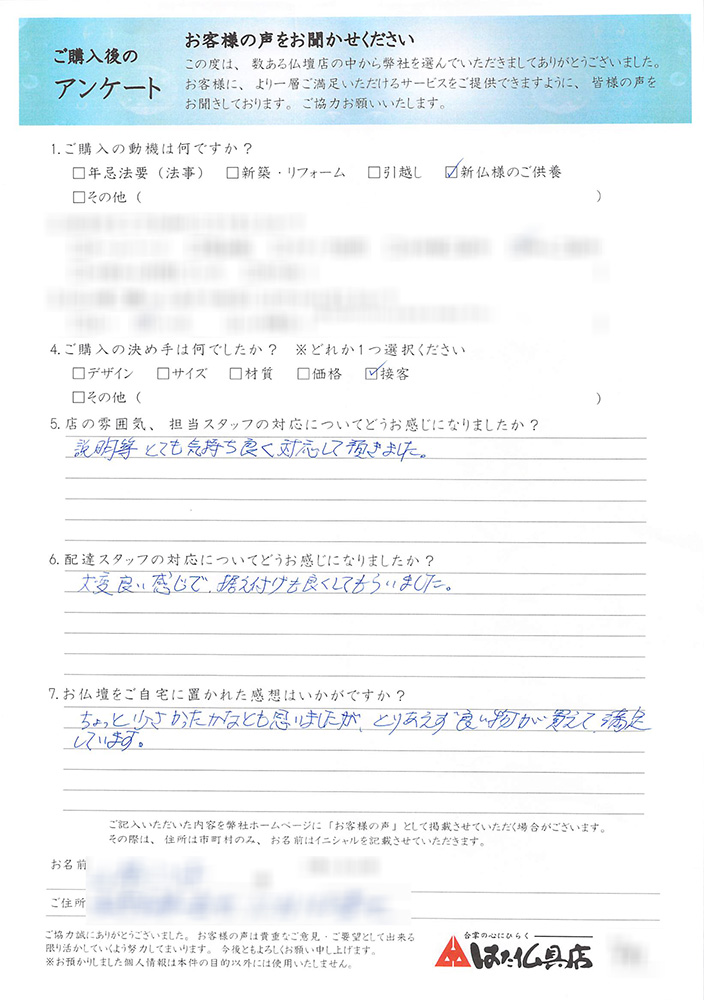 ご購入後の
アンケート
お客様の声をお聞かせください
この度は、数ある仏壇店の中から弊社を選んでいただきましてありがとうございました。
お客様に、より一層ご満足いただけるサービスをご提供できますように、皆様の声を
お聞きしております。ご協力お願いいたします。
1.ご購入の動機は何ですか？
□年忌法要（法事） □新築・リフォーム □引越し ☑新仏様のご供養
□その他（ ）
4.ご購入の決め手は何でしたか？ ※どれか1つ選択ください
□デザイン □サイズ □材質 □価格 ☑接客
□その他（ ）
5.店の雰囲気、担当スタッフの対応についてどうお感じになりましたか？
説明等とても気持ち良く対応して頂きました。
6.配達スタッフの対応についてどうお感じになりましたか？
大変良い感じで、据え付けも良くしてもらいました。
7.お仏壇をご自宅に置かれた感想はいかがですか？
ちょっと小さかったかなとも思いましたが、とりあえず良い物が買えて、満足
しています。
ご記入いただいた内容を弊社ホームページに「お客様の声」として掲載させていただく場合がございます。
その際は、住所は市町村のみ、お名前はイニシャルを記載させていただきます。
お名前
ご住所
ご協力誠にありがとうございました。お客様の声は貴重なご意見・ご要望として出来る
限り活かしていくよう努力してまいります。今後ともよろしくお願い申し上げます。
※お預かりしました個人情報は本件の目的以外には使用いたしません。
合掌の心にひらく
はた仏具店